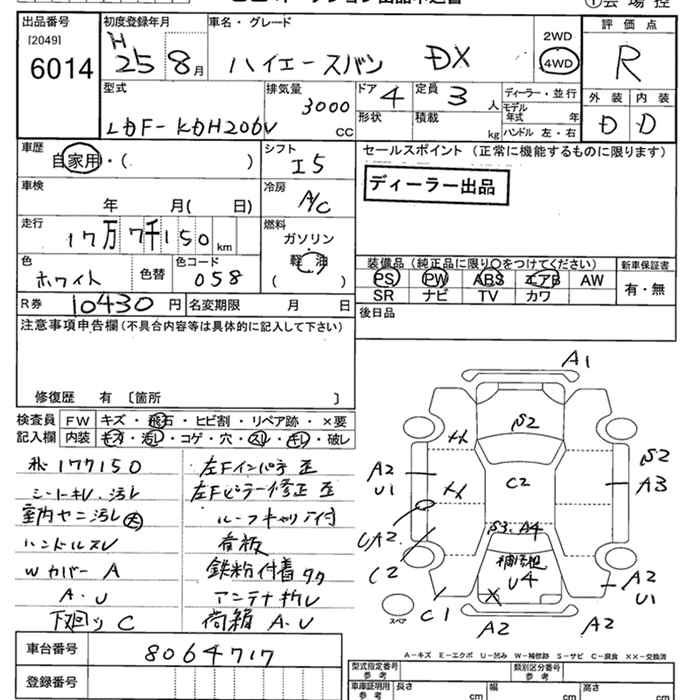 出品番号
[2049]
6014
初度登録年月
H25 8月
車名・グレード
ハイエースバン DX
2WD
4WD
評価点
R
外装 内装
D D
型式
LDF-KDH206V
排気量
3000 CC
ドア 4
定員 3 人
形状
積載 kg
ディーラー・並行
モデル年式 年
ハンドル 左・右
車歴
自家用・( )
シフト
I5
車検
年 月( 日)
冷房
A/C
走行
17万7千150 km
燃料
ガソリン
軽油
( )
色
ホワイト
色替
色コード
058
R券 10430 円
名変期限 月 日
セールスポイント (正常に機能するものに限ります)
ディーラー出品
装備品 (純正品に限り○をつけてください)
PS PW ABS エアB AW
SR ナビ TV カワ
新車保証書
有・無
後日品
注意事項申告欄 (不具合内容等は具体的に記入して下さい)
修復歴 有 〔箇所 〕
検査員記入欄
FW キズ・飛石・ヒビ割・リペア跡・×要
内装 キズ・汚レ・コゲ・穴・スレ・キレ・破レ
177150
シートキレ、汚レ
室内ヤニ汚レ大
ハンドルスレ
Wカバー A
A・U
下廻り C
左Fインパネ歪
左Fピラー修正歪
ルーフキャリア付
看板
鉄粉付着
アンテナキレ
荷箱 A・U
A1
S2
S2
A3
A2
U1
C2
UA2
C2
S3、A4
U4
A2
U1
C1
A2
A2
スペア
A-キズ E-エクボ U-凹み W-補修跡 S-サビ C-腐食 ××-交換済
車台番号 8064717
登録番号
型式指定番号 参考
類別区分番号 参考
車庫証明用 参考
長さ cm
幅 cm
高さ cm